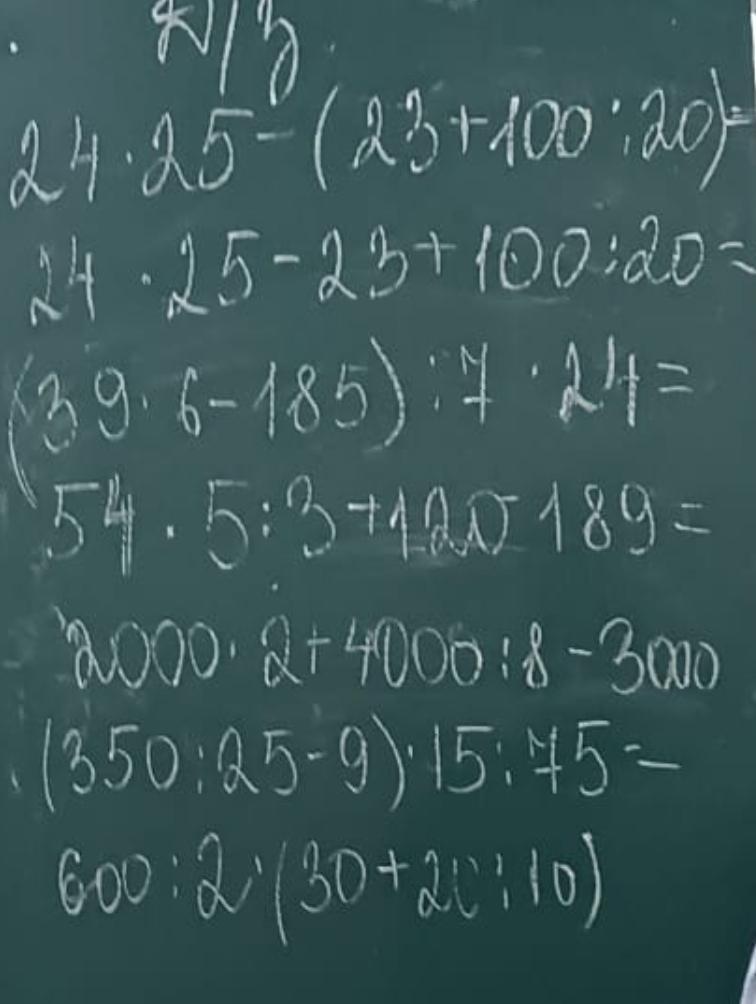 Д/З
24·25-(23+100:20)=
24·25-23+100:20=
(39·6-185):7·24=
54·5:3+120-189=
2000·2+4000:8-3000
(350:25-9)·15:75=
600:2·(30+20:10)